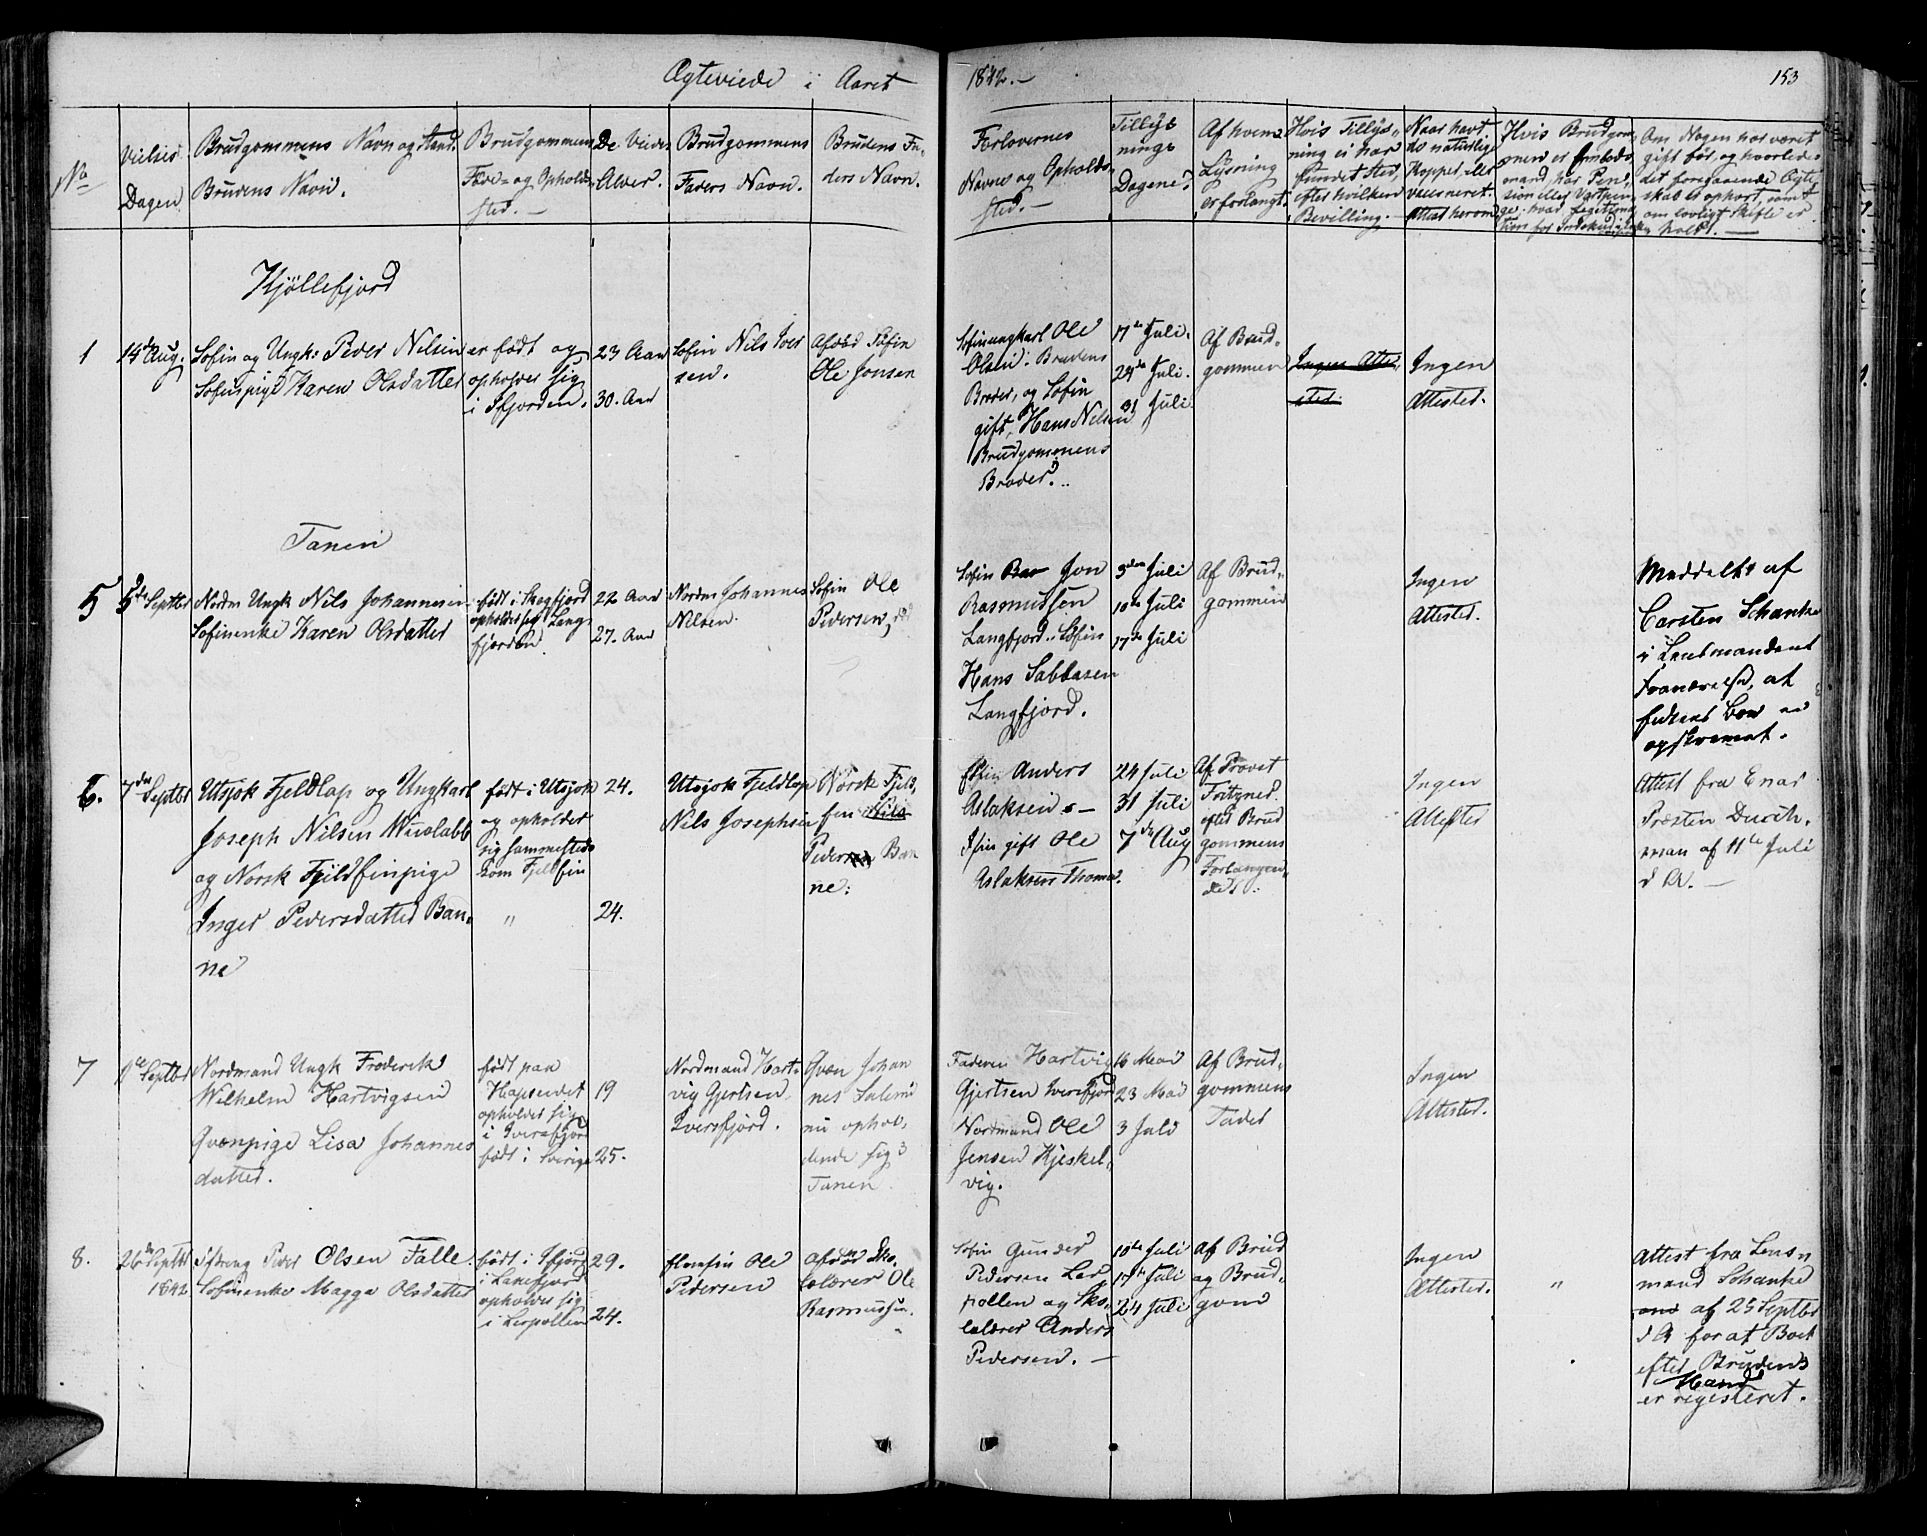 Ægteviede i Aaret
1842.-
153
No
Vielses
Dagen
Brudgommens Navn og Stand.
Brudens Navn.
Brudgommens
Føde- og Opholds-
sted. -
De Viedes
Alder.
Brudgommens
Faders Navn.
Brudens Fa-
ders Navn.
Forlovernes
Navne og Opholds-
sted. -
Tillys
nings
Dagene.
Af hvem
Lysning
er forlangt.
Hvis Tillys-
ning ei har
fundet Sted,
efter hvilken
Bevilling. -
Naar havt
de naturlige
Kopper, eller
vaccineret.
Attest herom
Hvis Brudgom-
men er Embeds
mand, har Pen-
sion eller Vartpen-
ge; hvad
han for
Om Nogen har været
gift før, og hvorledes
det foregaaende Ægte
skab er ophørt, samt
om lovligt Skifte er
holdt. -
Kjöllefjord
1
14de Aug.
Søfin og Ungk: Peder Nilsen
Søfinpige Karen Olsdatter
er født og
opholder sig
i Ifjorden.
23 Aar
30. Aar
Søfin Nils Iver
sen.
Afdød Søfin
Ole Jonsen
Søfinungkarl Ole
Olsen: Brudens
Broder, og Søfin
gift, Hans Nilsen
Brudgommens
Broder.
17de Juli.
24de Juli.
31 Juli
Af Brud-
gommen
Ingen Atte-
sted.
Ingen
Attested.
Tanen
5
3de Septbr
Nordm Ungk Nils Johannesen
Søfinenke Karen Olsdatter
født i
opholder sig Lang
fjorden.
22 Aar
27. Aar
Nordm Johannes
Nilsen.
Søfin Ole
Pedersen,
Søfin Jon
Rasmussen
Langfjord. Søfin
Hans Sabbasen
Langfjord.
3den Juli
10de Juli
17de Juli
Af Brud-
gommen
Ingen
Attested.
Meddelt af
Carsten Schanke
i Lensmandens
Fraværelse, at
opskrevet.
6.
7de Septbr
Utsjok Fjeldlap og Ungkarl
Joseph Nilsen Wuolabb
og Norsk Fjeldfinpige
Inger Pedersdatter Ban-
ne
født i Utsjok
og opholder
sig sammesteds
som Fjeldfin
"
24.
24.
Utsjok Fjeldlap
Nils Josephsen
Norsk Fjeld-
fin Nils
Pedersen Ban
ne:
Anders
Aslaksen -
gift Ole
Aslaksen Thomas.
24 Juli
31 Juli
7de Aug
Af Provst
Fritzner
efter Brud
gommens
Forlangen-
de.
Ingen
Attester
Attest fra Enar
Præsten Durch-
man af 11te Juli
d A. -
7
Septbr
Nordmand Ungk Frederik
Wilhelm Hartvigsen
Qvænpige Lisa Johannes
datter.
født paa
Hopseidet
opholder sig
i Iversfjord
født i Sverige
19
25.
Nordmand Hart-
vig Gjertsen
Iversfjord.
Qvæn Johan
nes
nu ophol-
dende sig i
Tanen
Faderen Hartvig
Gjertsen Iversfjord
Nordmand Ole
Jensen Kjeskel-
vig.
16 Mai
23 Mai
3 Juli
Af Brud-
gommens
Fader
Ingen
Attested.
8.
26de Septbr
1842
Peder Olsen Falle.
Søfinenke Magga Olsdatter
født i Ifjord
i Laxefjord
opholder sig
i Lerpollen
29.
24.
Ole
Pedersen
Afdød Sko-
lelærer Ole
Rasmussen.
Søfin Gunder
Pedersen Ler
pollen og Sko-
lelærer Anders
Pedersen. -
10de Juli
17de Juli
24 Juli
Af Brud
og Brud-
gom
Ingen
Attested.
"
Attest fra Lens-
mand Schanke
af 25 Septbr
d A for at Boet
efter Brudens
Mand
er registeret.